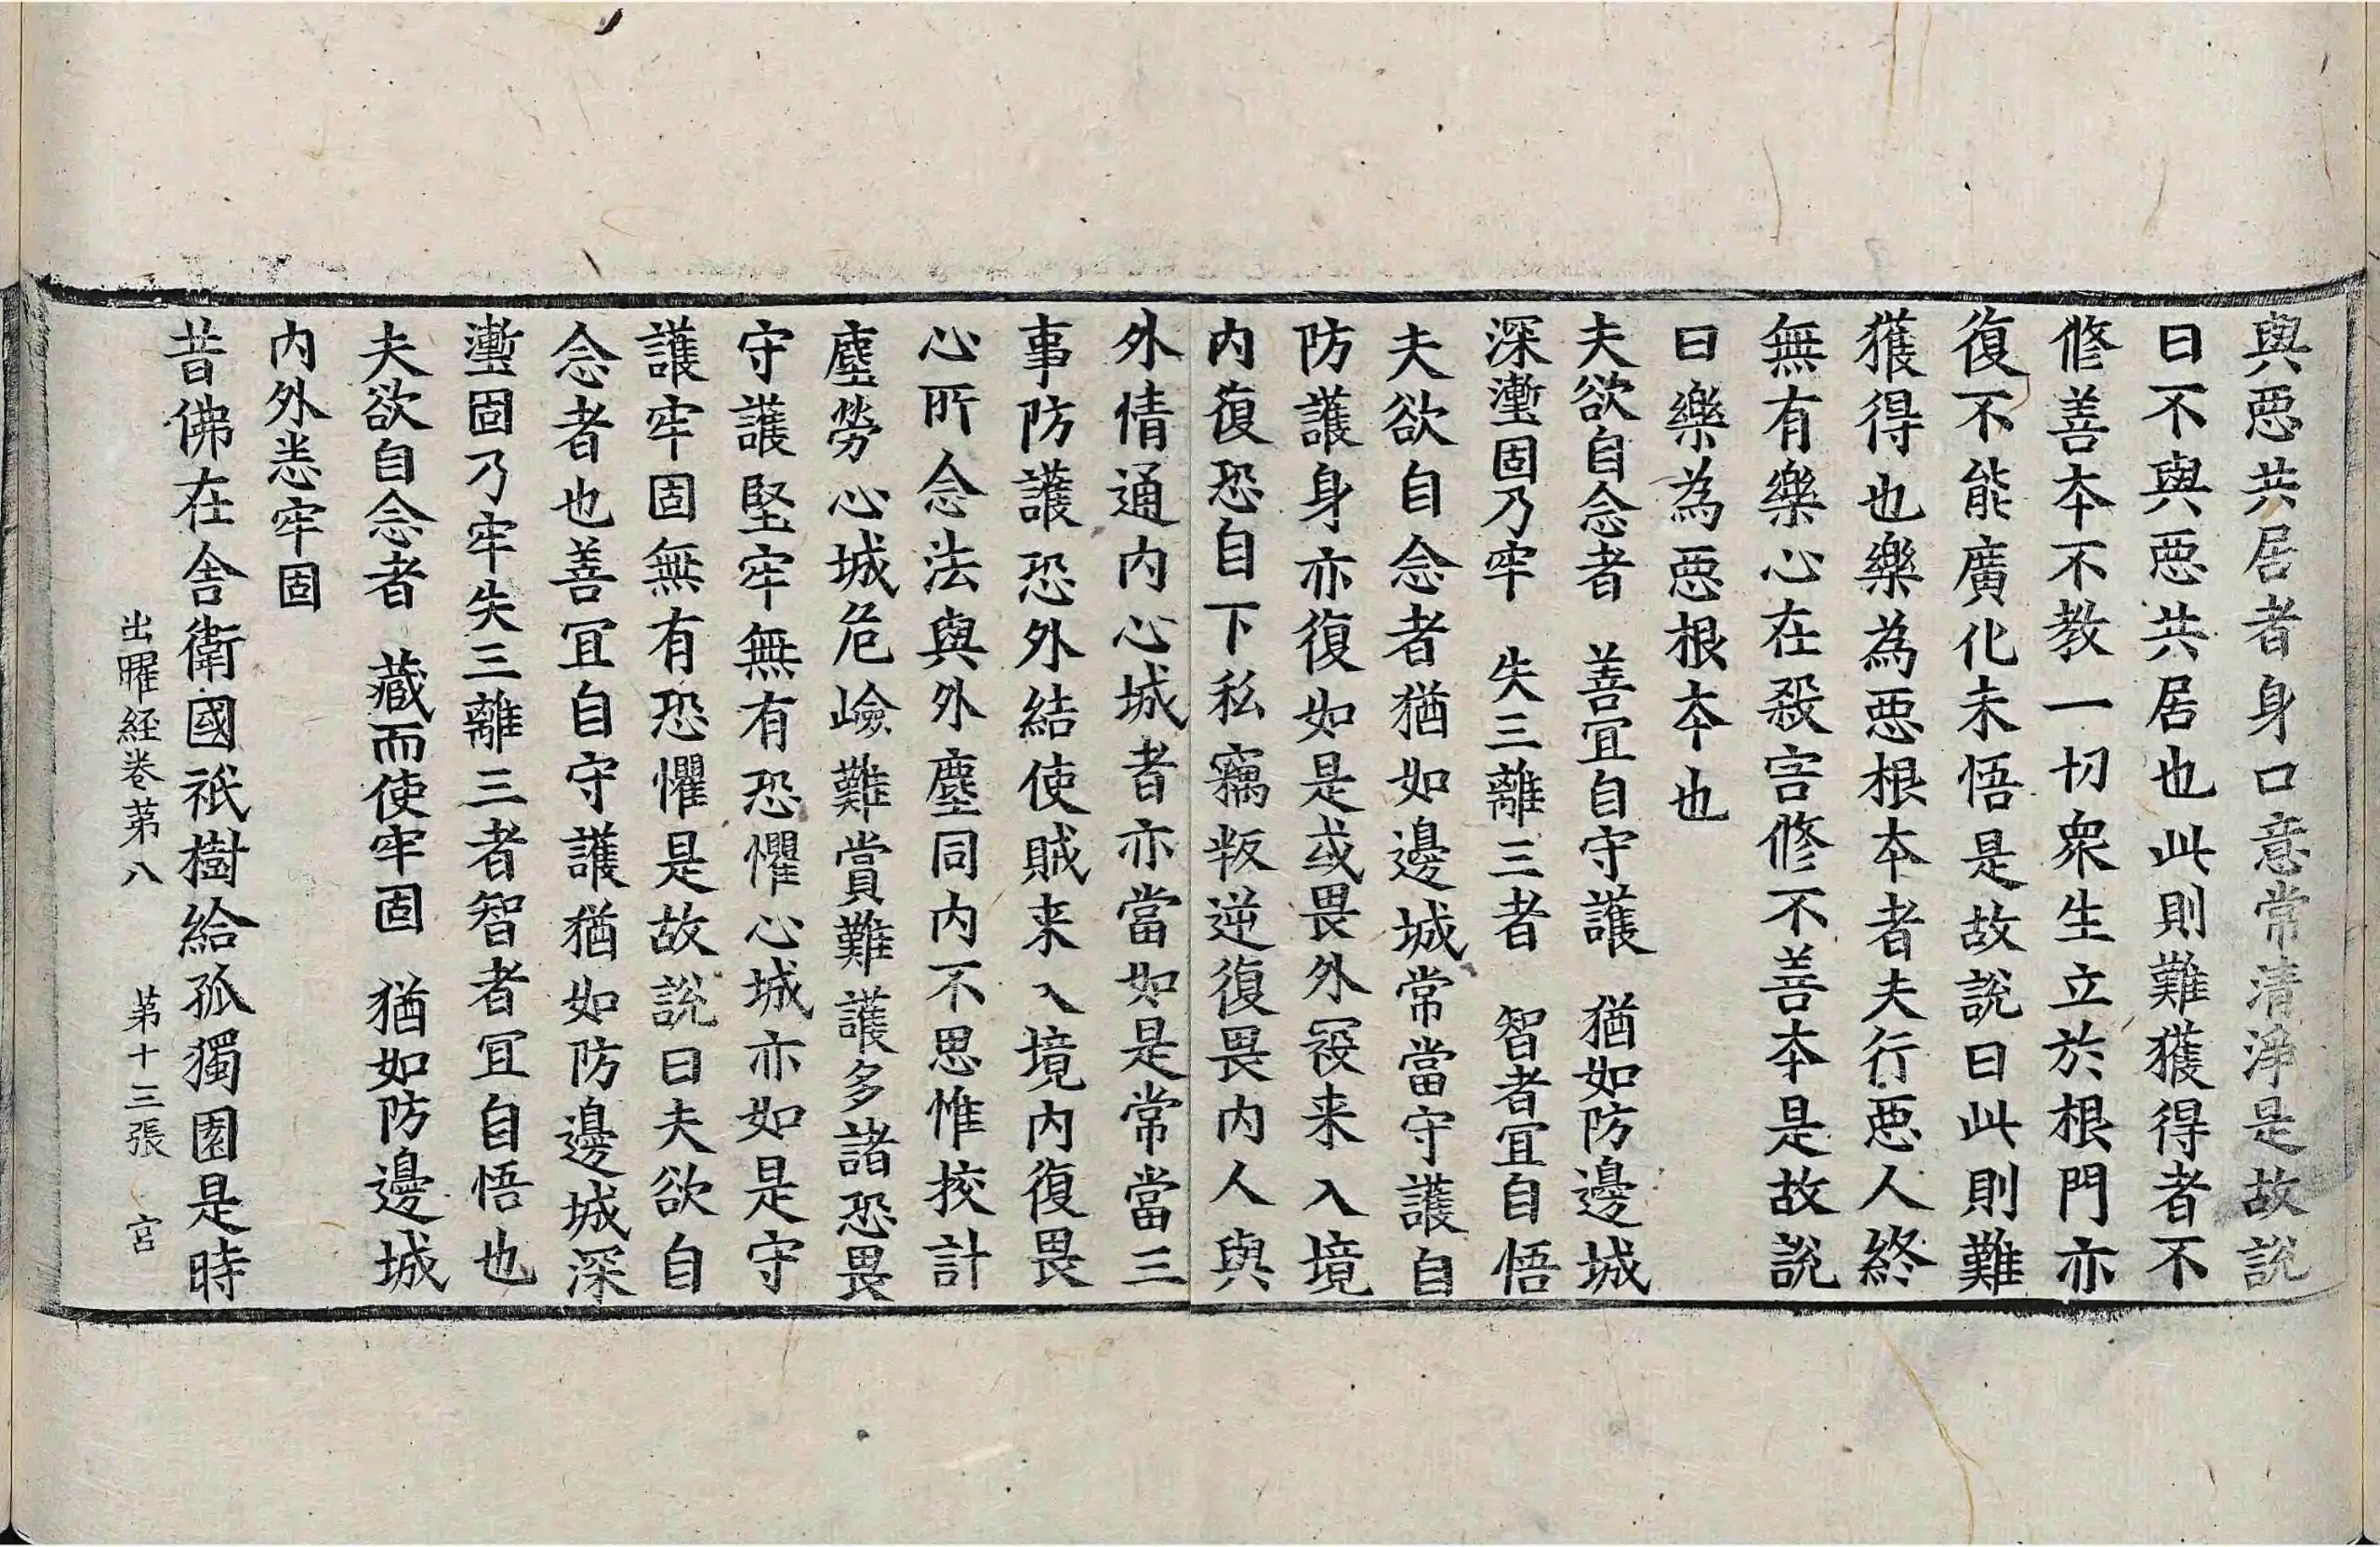 與惡共居者身口意常清淨是故說
曰不與惡共居也此則難獲得者不
修善本不教一切衆生立於根門亦
復不能廣化未悟是故說曰此則難
獲得也樂為惡根本者夫行惡人終
無有樂心在殺害修不善本是故說
曰樂為惡根本也
夫欲自念者　善宜自守護　猶如防邊城
深壍固乃牢　失三離三者　智者宜自悟
夫欲自念者猶如邊城常當守護自
防護身亦復如是或畏外寇来入境
内復恐自下私竊叛逆復畏内人與
外情通内心城者亦當如是常當三
事防護恐外結使賊来入境内復畏
心所念法與外塵同内不思惟挍計
塵勞心城危嶮難賞難護多諸恐畏
守護堅牢無有恐懼心城亦如是守
護牢固無有恐懼是故說曰夫欲自
念者也善宜自守護猶如防邊城深
壍固乃牢失三離三者智者宜自悟也
夫欲自念者　藏而使牢固　猶如防邊城
内外悉牢固
昔佛在舍衛國祇樹給孤獨園是時
出曜経卷第八　第十三張　宮